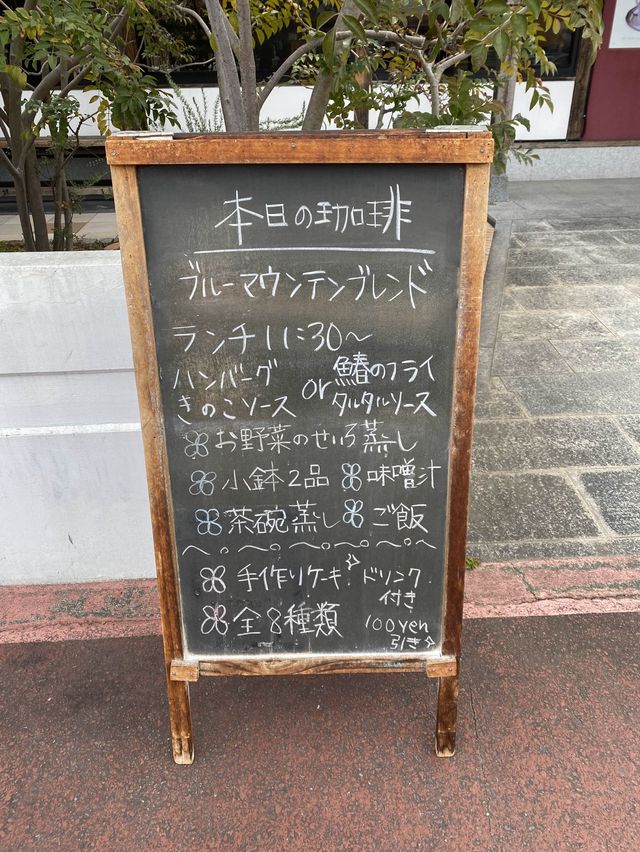 本日の珈琲
ブルーマウンテンブレンド
ランチ11:30～
ハンバーグ
きのこソース
or
鰆のフライ
タルタルソース
お野菜のせいろ蒸し
小鉢2品 味噌汁
茶碗蒸し ご飯
手作りケーキ
全8種類
ドリンク
付き
100yen
引き